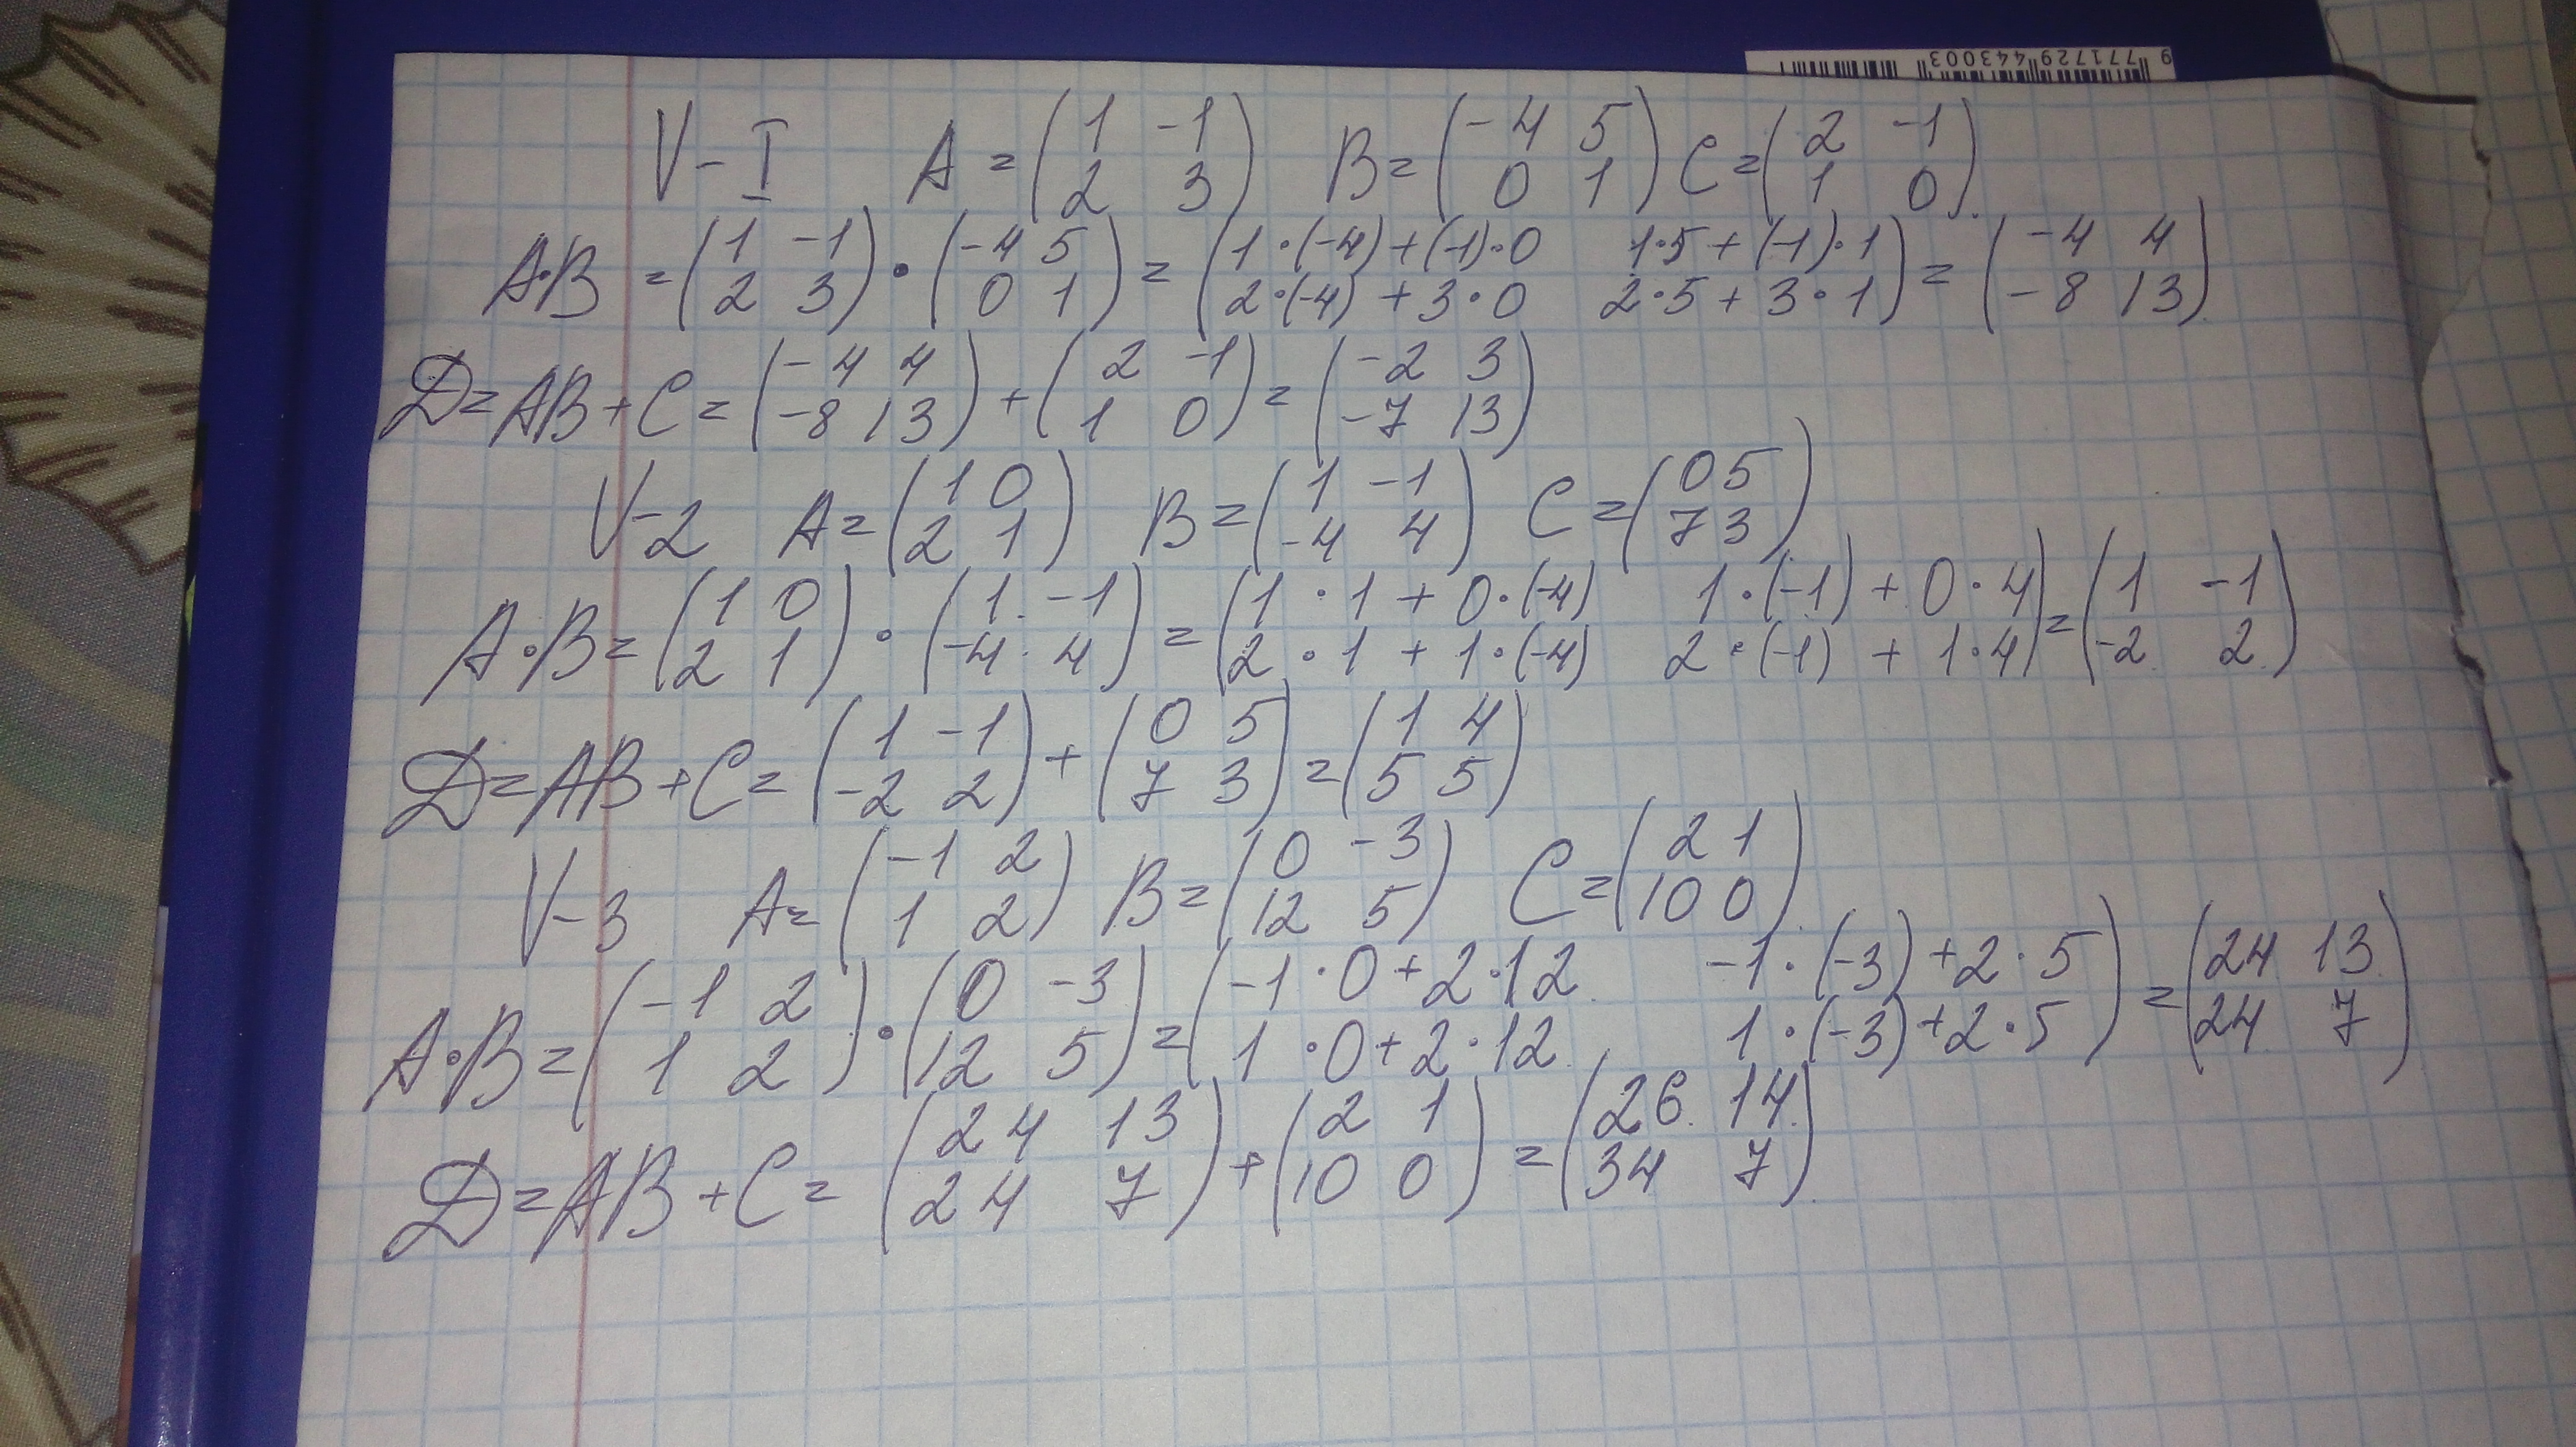 9 771729 443003
V-I A = (1 -1 2 3) B = (-4 5 0 1) C = (2 -1 1 0)
A·B = (1 -1 2 3) · (-4 5 0 1) = (1·(-4)+(-1)·0 1·5+(-1)·1 2·(-4)+3·0 2·5+3·1) = (-4 4 -8 13)
D = AB + C = (-4 4 -8 13) + (2 -1 1 0) = (-2 3 -7 13)
V-2 A = (1 0 2 1) B = (1 -1 -4 4) C = (0 5 7 3)
A·B = (1 0 2 1) · (1 -1 -4 4) = (1·1+0·(-4) 1·(-1)+0·4 2·1+1·(-4) 2·(-1)+1·4) = (1 -1 -2 2)
D = AB + C = (1 -1 -2 2) + (0 5 7 3) = (1 4 5 5)
V-3 A = (-1 2 1 2) B = (0 -3 12 5) C = (2 1 10 0)
A·B = (-1 2 1 2) · (0 -3 12 5) = (-1·0+2·12 -1·(-3)+2·5 1·0+2·12 1·(-3)+2·5) = (24 13 24 7)
D = AB + C = (24 13 24 7) + (2 1 10 0) = (26 14 34 7)